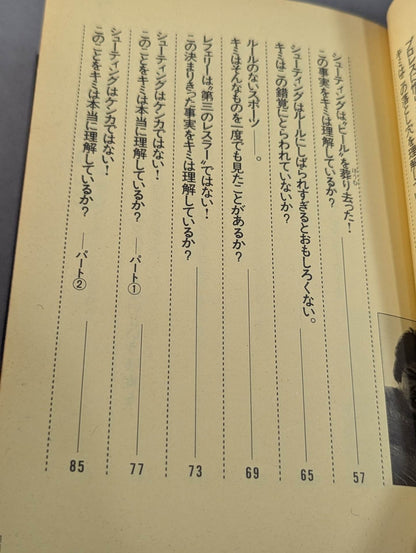 シューティングは“ヒール”を葬り去った！
この事実をキミは理解しているか？
57
シューティングはルールにしばられすぎるとおもしろくない。
キミはこの錯覚にとらわれていないか？
65
ルールのないスポーツ――。
キミはそんなものを一度でも見たことがあるか？
69
レフェリーは“第三のレスラー”ではない！
この決まりきった事実をキミは理解しているか？
73
シューティングはケンカではない！
このことをキミは本当に理解しているか？ ――パート①
77
シューティングはケンカではない！
このことをキミは本当に理解しているか？ ――パート②
85